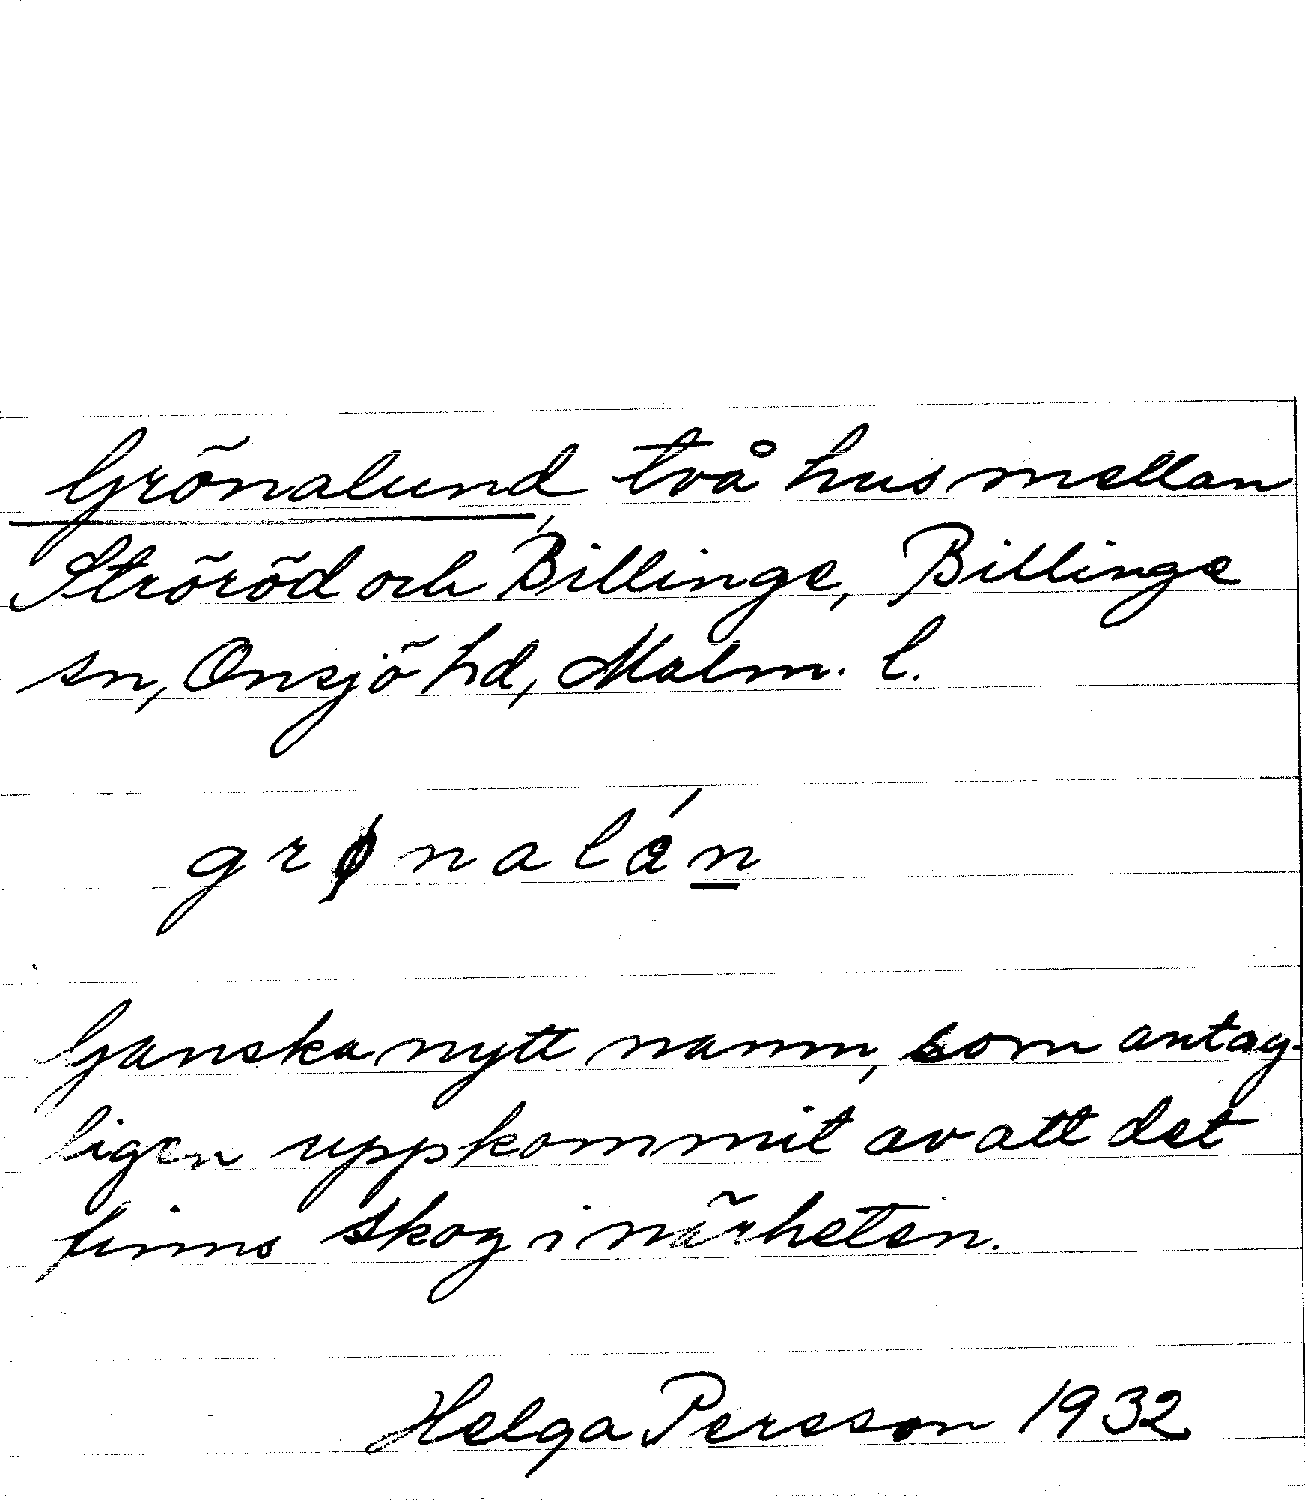 Grönalund, två hus mellan
Ströröd och Billinge, Billinge
sn, Onsjö hd, Malm. l.
Ganska nytt namn, som antag-
ligen uppkommit av att det
finns skog i närheten.
Helga Persson 1932